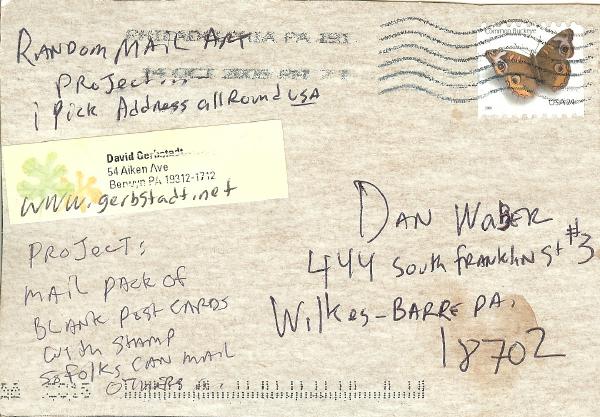 RANDOM MAIL ART
PROJECT...
i Pick Address all Round USA
PHILADELPHIA PA 191
14 OCT 2006 PM
Common Buckeye
USA24
David Gerbstadt
54 Aiken Ave
Berwyn PA 19312-1712
www.gerbstadt.net
PROJECT:
MAIL PACK OF
BLANK POST CARDS
WITH STAMP
So FOLKS CAN MAIL
OTHERS
DAN WABER
444 South FRANKLIN St #3
Wilkes-BARRE PA.
18702